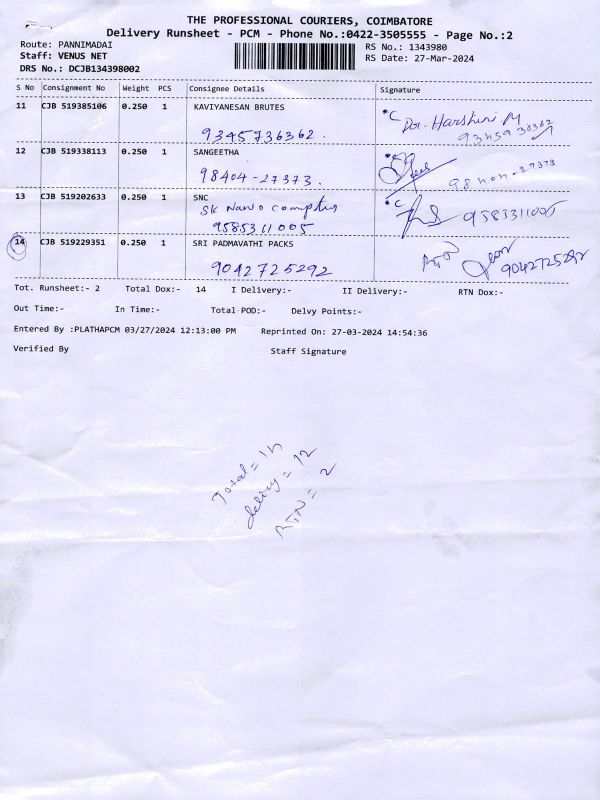 THE PROFESSIONAL COURIERS, COIMBATORE
Delivery Runsheet - PCM - Phone No.:0422-3505555 - Page No.:2
Route: PANNIMADAI
Staff: VENUS NET
DRS No.: DCJB134398002
RS No.: 1343980
RS Date: 27-Mar-2024
S No Consignment No Weight PCS Consignee Details Signature
11 CJB 519385106 0.250 1 KAVIYANESAN BRUTES
9345736362. Dr. Harshini M
12 CJB 519338113 0.250 1 SANGEETHA
98404-27373.
13 CJB 519202633 0.250 1 SNC
SK Nano
9585311005 9585311005
14 CJB 519229351 0.250 1 SRI PADMAVATHI PACKS
RTN
9042725292 9042725292
Tot. Runsheet:- 2 Total Dox:- 14 I Delivery:- II Delivery:- RTN Dox:-
Out Time:- In Time:- Total POD:- Delvy Points:-
Entered By :PLATHAPCM 03/27/2024 12:13:00 PM Reprinted On: 27-03-2024 14:54:36
Verified By Staff Signature
Total = 14
delivery = 12
RTN = 2